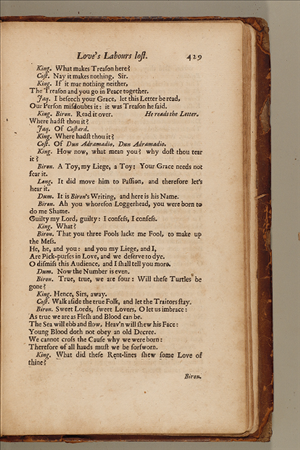 Love's Labours lost. 429
King. What makes Treason here?
Cost. Nay it makes nothing, Sir.
King. If it mar nothing neither,
The Treason and you go in Peace together.
Jaq. I beseech your Grace, let this Letter be read,
Our Person misdoubts it: it was Treason he said.
King. Biron. Read it over. He reads the Letter.
Where hadst thou it?
Jaq. Of Costard.
King. Where hadst thou it?
Cost. Of Dun Adramadio, Dun Adramadio.
King. How now, what mean you? why dost thou tear
it?
Biron. A Toy, my Liege, a Toy: Your Grace needs not
fear it.
Long. It did move him to Passion, and therefore let's
hear it.
Dum. It is Biron's Writing, and here is his Name.
Biron. Ah you whoreson Loggerhead, you were born to
do me Shame.
Guilty my Lord, guilty: I confess, I confess.
King. What?
Biron. That you three Fools lackt me Fool, to make up
the Mess.
He, he, and you: and you my Liege, and I,
Are Pick-purses in Love, and we deserve to dye.
O dismiss this Audience, and I shall tell you more.
Dum. Now the Number is even.
Biron. True, true, we are four: Will these Turtles be
gone?
King. Hence, Sirs, away.
Cost. Walk aside the true Folk, and let the Traitors stay.
Biron. Sweet Lords, sweet Lovers, O let us imbrace:
As true we are as Flesh and Blood can be.
The Sea will ebb and flow, Heav'n will shew his Face:
Young Blood doth not obey an old Decree.
We cannot cross the Cause why we were born:
Therefore of all hands must we be forsworn.
King. What did these Rent-lines shew some Love of
thine?
Biron.